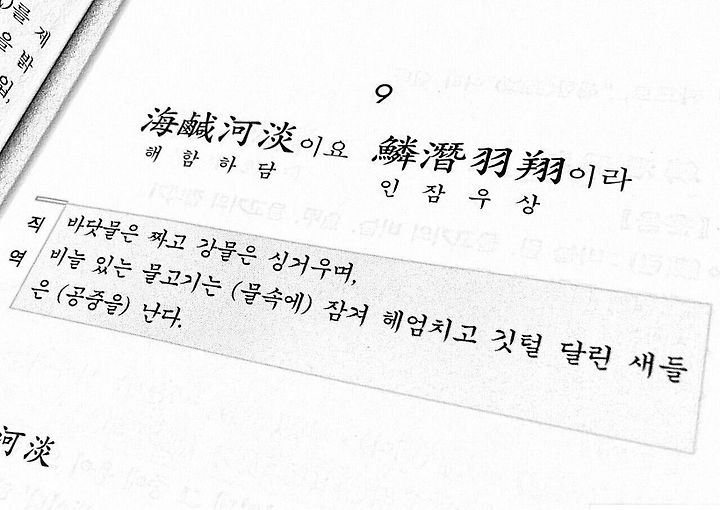 를 제
을 밝
9
海鹹河淡이요 鱗潛羽翔이라
해 함 하 담 인 잠 우 상
직역
바닷물은 짜고 강물은 싱거우며,
비늘 있는 물고기는 (물속에) 잠겨 헤엄치고 깃털 달린 새들
은 (공중을) 난다.
河淡